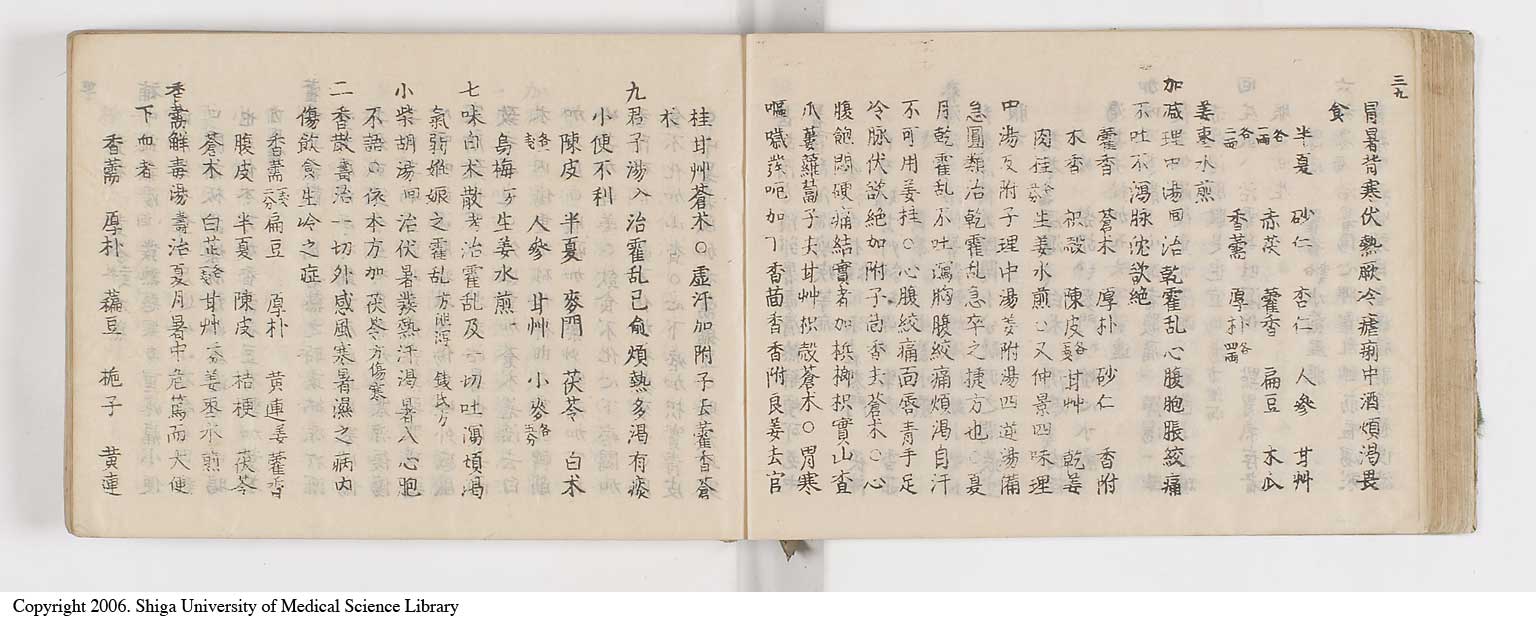 三九
冒暑背寒伏熱腹冷瘧痢中酒煩渇畏
食
半夏 砂仁 杏仁 人參 甘艸
各一両 赤茯 藿香 扁豆 木瓜
各二両 香薷 厚朴各四両
姜棗水煎
加减理中湯回 治乾霍乱心腹胞脹絞痛
不吐不瀉脉沈欲絶
藿香 蒼术 厚朴 砂仁 香附
木香 枳殻 陳皮各 甘艸 乾姜
肉桂 生姜水煎○又仲景四味理
中湯及附子理中湯姜附湯四逆湯備
急圓類治乾霍乱急卒之捷方也○夏
月乾霍乱不吐瀉胸腹絞痛煩渇自汗
不可用姜桂○心腹絞痛面唇青手足
冷脉伏欲絶加附子茴香去蒼术○心
腹飽悶硬痛結實者加梹榔枳實山査
爪蔞蘿蔔子去甘艸枳殻蒼术○胃寒
嘔噦發呃加丁香茴香香附良姜去官
桂甘艸蒼术○虚汗加附子去藿香蒼
术
九君子湯入 治霍乱已俞煩熱多渇有痰
小便不利
加陳皮 半夏 麥門 茯苓 白术
烏梅 人參 甘艸 小麥各五分
生姜水煎
七味白术散考治霍乱及一切吐瀉煩渇
氣弱娓娠之霍乱方 錢氏方
小柴胡湯回 治伏暑發熱汗渇暑入心胞
不語○依本方加茯苓方傷寒
二香散壽治一切外感風寒暑濕之病内
傷飲食生冷之症
香薷二戔二分 扁豆 厚朴 黄連姜 藿香
腹皮 半夏 陳皮 桔梗 茯苓
蒼术 白芷 甘艸 姜棗水煎
香薷解毒湯壽治夏月暑中危篤而大便
下血者
香薷 厚朴 藊豆 梔子 黄連
Copyright 2006. Shiga University of Medical Science Library